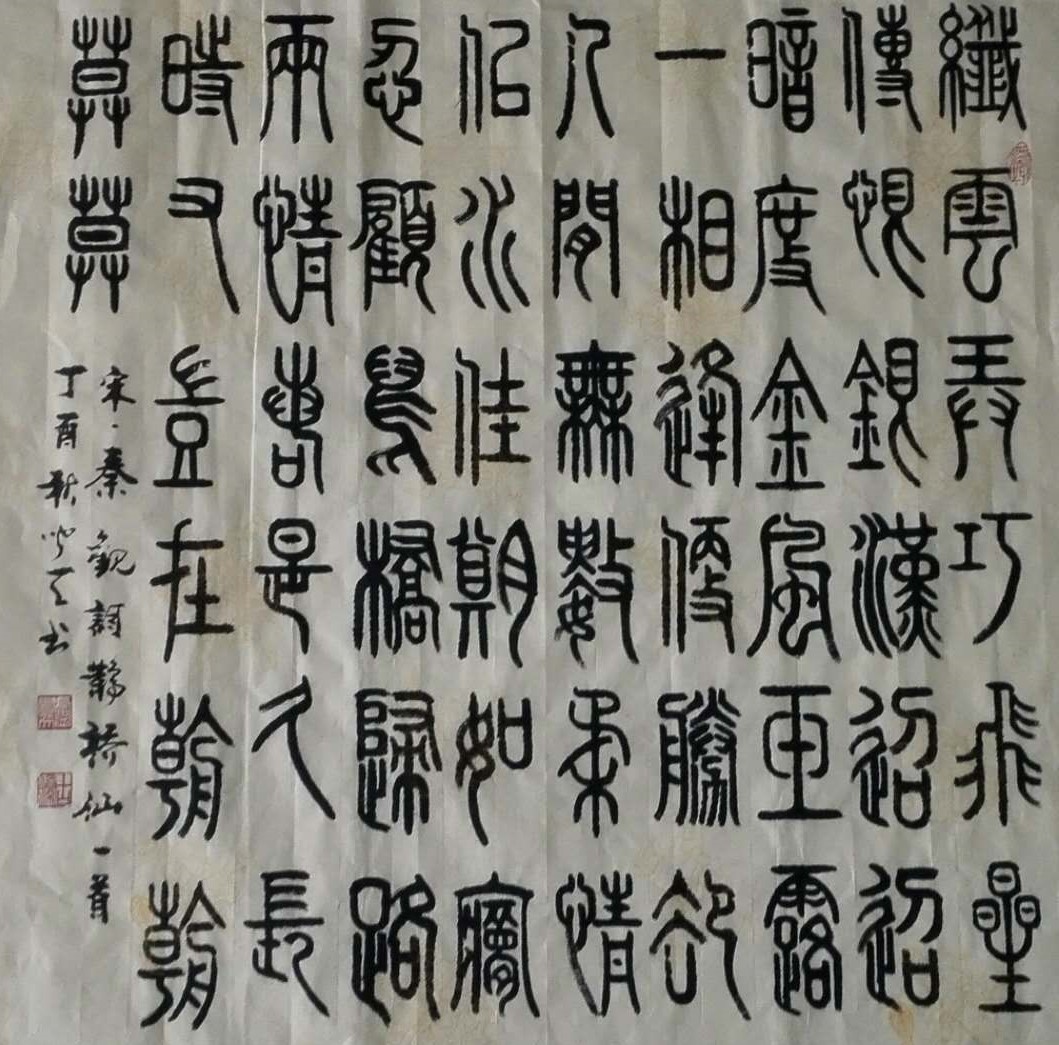 纖雲弄巧飛星
傳恨銀漢迢迢
暗度金風玉露
一相逢便勝卻
人間無數柔情
似水佳期如夢
忍顧鵲橋歸路
兩情若是久長
時又豈在朝朝
莫莫
宋·秦觀詞鵲橋仙一首
丁酉秋书